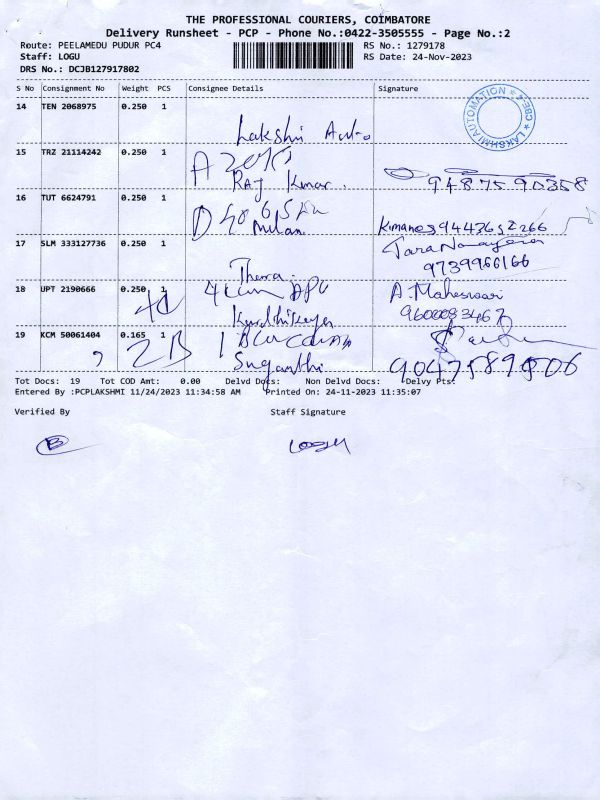 THE PROFESSIONAL COURIERS, COIMBATORE
Delivery Runsheet - PCP - Phone No.:0422-3505555 - Page No.:2
Route: PEELAMEDU PUDUR PC4
RS No.: 1279178
Staff: LOGU
RS Date: 24-Nov-2023
DRS No.: DCJB127917802
S No Consignment No Weight PCS Consignee Details Signature
14 TEN 2068975 0.250 1
LAKSHMI AUTOMATION * CBE-4 *
Lakshmi Auto
15 TRZ 21114242 0.250 1
A 201
Raj Kumar.
94875 90358
16 TUT 6624791 0.250 1
Milan
17 SLM 333127736 0.250 1
Thara.
9739966166
18 UPT 2190666 0.250 1
A. Maheswari
Karthikeyan
9600083467
19 KCM 50061404 0.165 1
2B
Suganthi
Tot Docs: 19 Tot COD Amt: 0.00 Delvd Docs: Non Delvd Docs: Delvy Pts:
Entered By :PCPLAKSHMI 11/24/2023 11:34:58 AM Printed On: 24-11-2023 11:35:07
Verified By Staff Signature
B